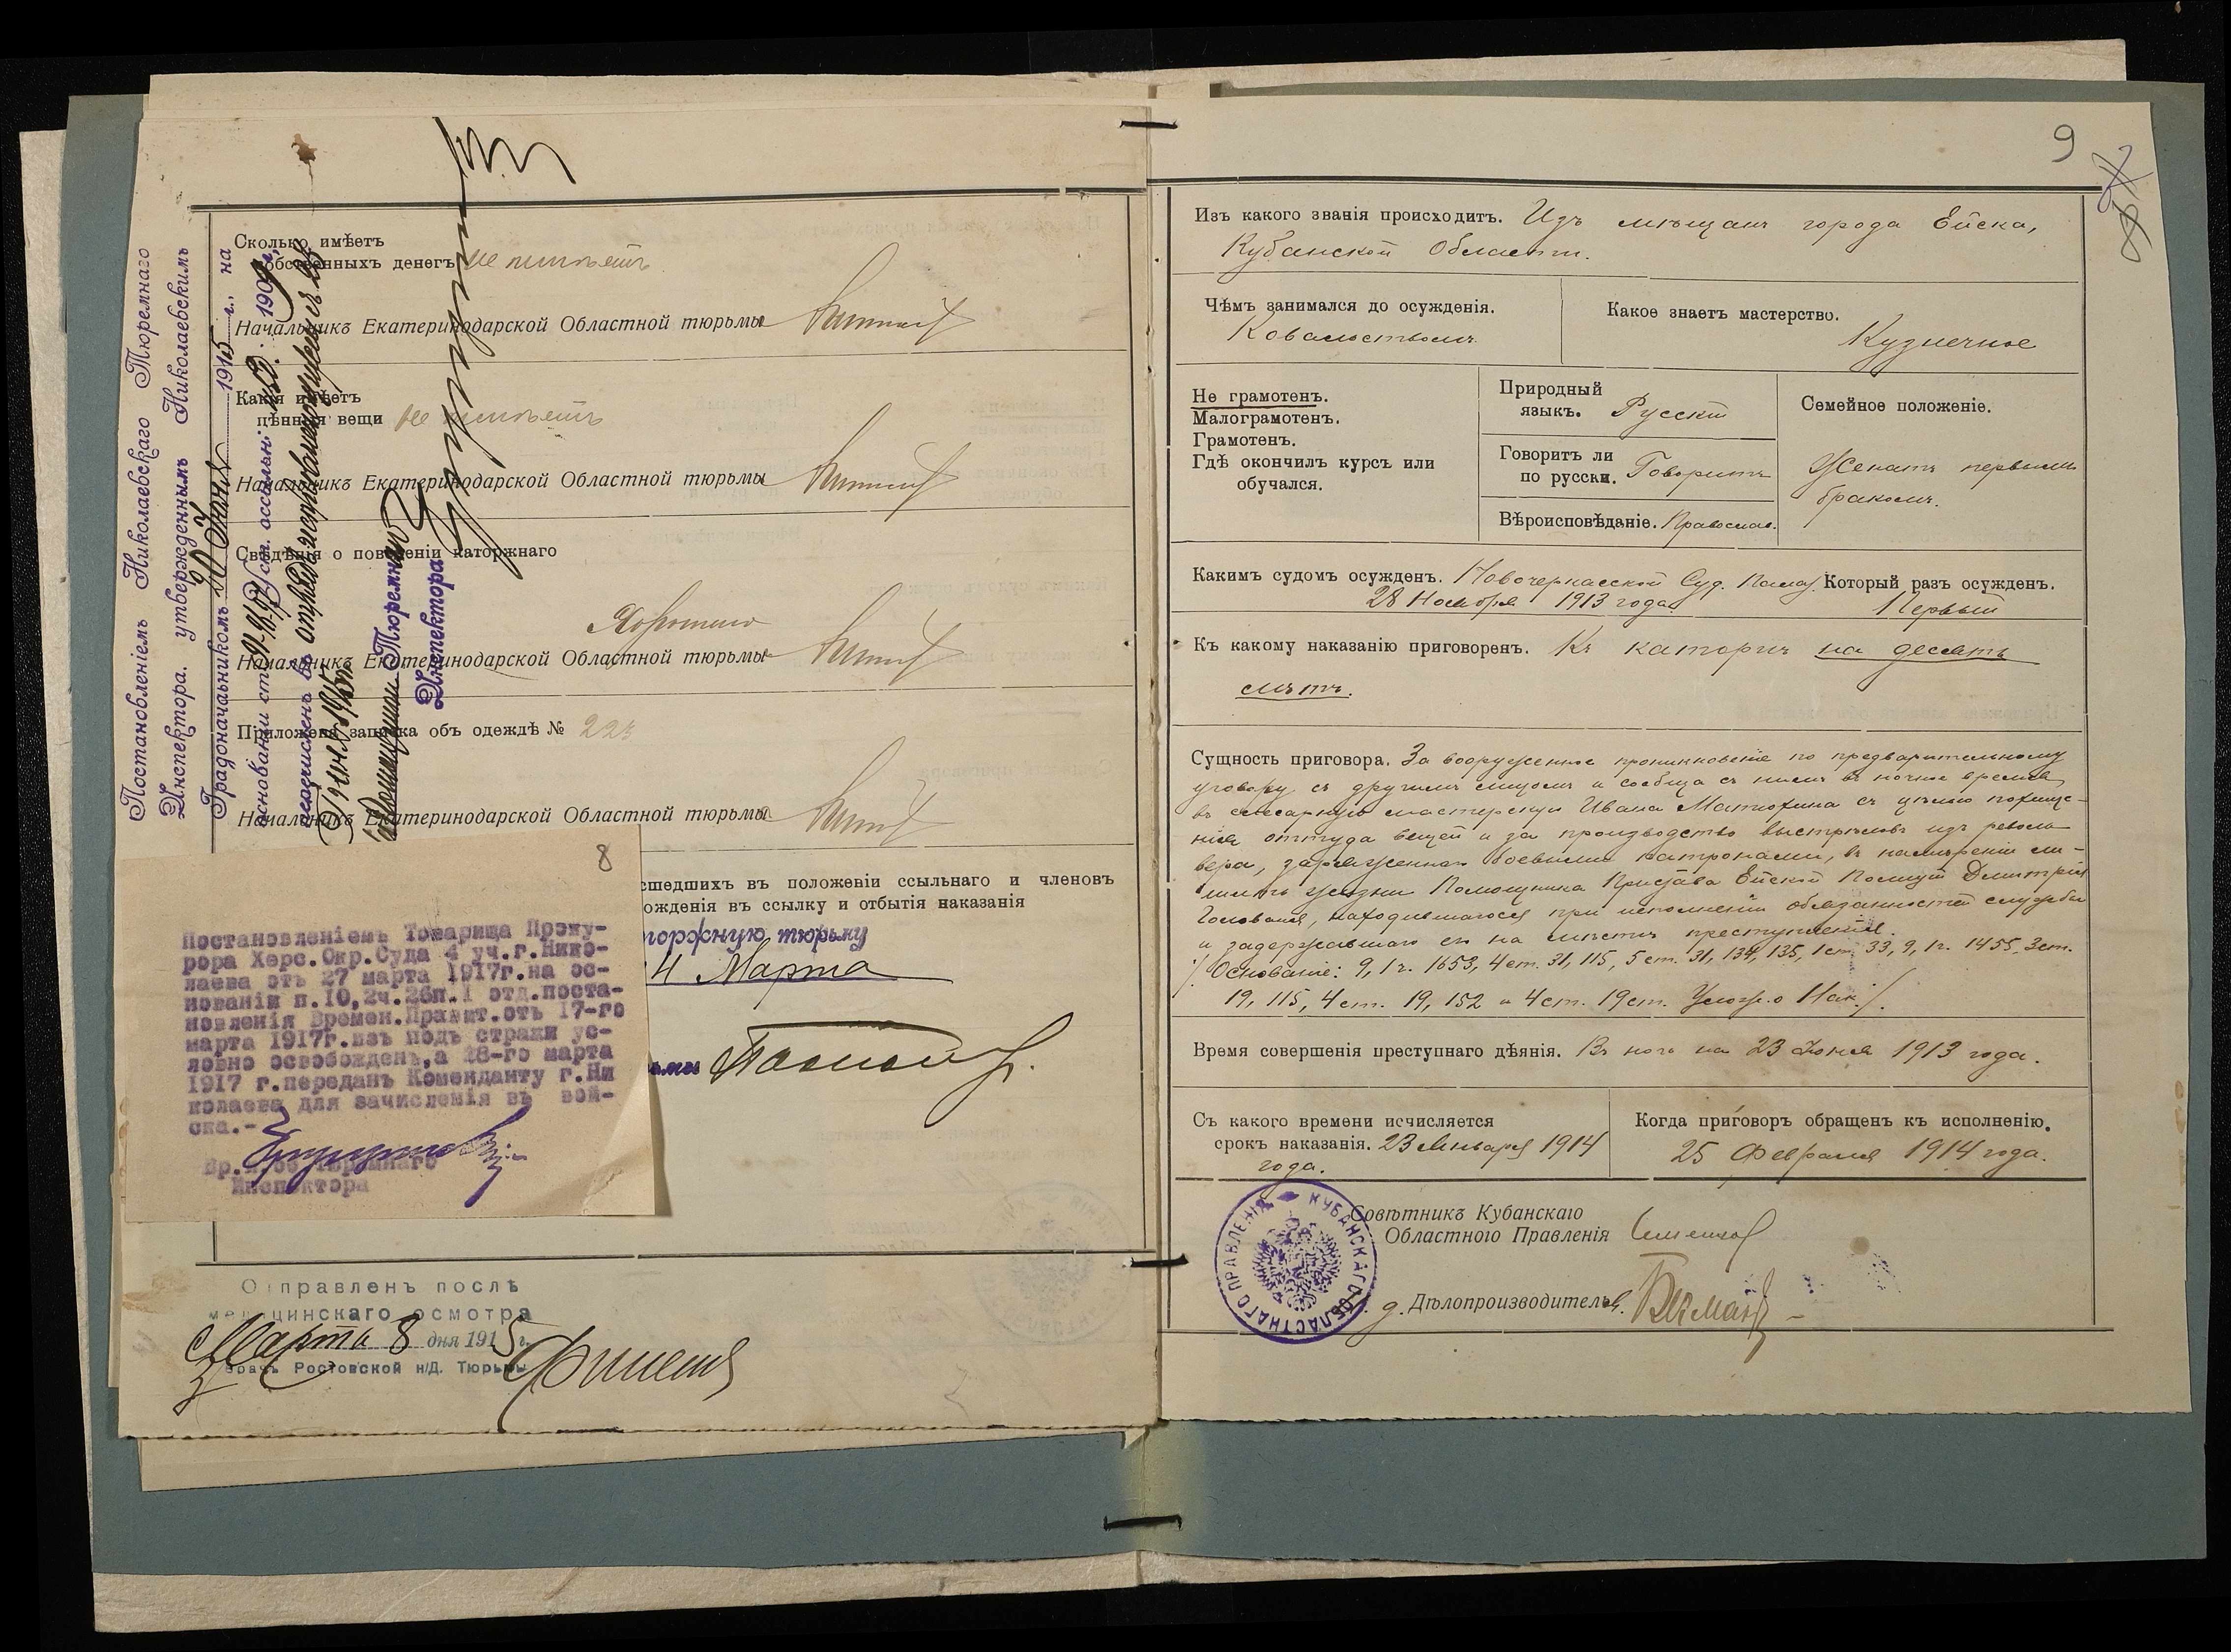 Сколько имѣетъ
собственныхъ денегъ не имѣетъ
Начальникъ Екатеринодарской Областной тюрьмы
Какія имѣетъ
цѣнныя вещи не имѣетъ
Начальникъ Екатеринодарской Областной тюрьмы
Свѣдѣнія о поведеніи каторжнаго
Хорошаго
Начальникъ Екатеринодарской Областной тюрьмы
Приложена записка объ одеждѣ №
Начальникъ Екатеринодарской Областной тюрьмы
Постановленіемъ Николаевскаго Тюремнаго
Инспектора. утвержденнымъ Николаевскимъ
Градоначальникомъ 1915 г., на
основаніи ст. Уст. о ссыльн. изд. 1909 г.
перечисленъ въ отрядъ исправляющихся съ
Помощникъ Тюремнаго
Инспектора
сшедшихъ въ положеніи ссыльнаго и членовъ
ожденія въ ссылку и отбытія наказанія
торжную тюрьму
4 Марта
8
Постановленіемъ Товарища Проку-
рора Херс.Окр.Суда 4 уч.г.Нико-
лаева отъ 27 марта 1917г.на ос-
нованіи п.10,2ч.26п.1 отд.поста-
новленія Времен.Правит.отъ 17-го
марта 1917г.изъ подъ стражи ус-
ловно освобожденъ,а 28-го марта
1917 г.переданъ Коменданту г.Ни
колаева для зачисленія въ вой-
ска.-
Вр.и.об.Тюремнаго
Инспектора
Отправленъ послѣ
медицинскаго осмотра
Марта 8 дня 1915 г.
Врачъ Ростовской н/Д. Тюрьмы
9
Изъ какого званія происходитъ. Изъ мѣщанъ города Ейска,
Кубанской Области.
Чѣмъ занимался до осужденія.
Ковальствомъ
Какое знаетъ мастерство.
Кузнечное
Не грамотенъ.
Малограмотенъ.
Грамотенъ.
Гдѣ окончилъ курсъ или
обучался.
Природный
языкъ. Русскій
Говоритъ ли
по русски. Говоритъ
Вѣроисповѣданіе. Православ.
Семейное положеніе.
Женатъ первымъ
бракомъ.
Какимъ судомъ осужденъ. Новочеркасской Суд. Палат.
28 Ноября 1913 года
Который разъ осужденъ.
Первый
Къ какому наказанію приговоренъ. Къ каторгѣ на десять
лѣтъ.
Сущность приговора. За вооруженное проникновеніе по предварительному
уговору съ другимъ лицомъ и сообща съ нимъ въ ночное время
въ слесарную мастерскую Ивана Матюхина съ цѣлью похище-
нія оттуда вещей и за производство выстрѣловъ изъ револь-
вера, заряженнаго боевыми патронами, въ намѣреніи ли-
шить жизни Помощника Пристава Ейской Полиціи Дмитрія
Голованя, находившагося при исполненіи обязанностей службы
и задержавшаго его на мѣстѣ преступленія.
/ Основаніе: 9, 1 ч. 1653, 4 ст. 31, 115, 5 ст. 31, 134, 135, 1 ст. 33, 9, 1 ч. 1455, 3 ст.
19, 115, 4 ст. 19, 152 и 4 ст. 19 ст. Улож. о Нак. /.
Время совершенія преступнаго дѣянія. Въ ночь на 23 Іюня 1913 года.
Съ какого времени исчисляется
срокъ наказанія. 23 Января 1914
года.
Когда приговоръ обращенъ къ исполненію.
25 Февраля 1914 года.
Совѣтникъ Кубанскаго
Областного Правленія
д. Дѣлопроизводитель
КУБАНСКАГО ОБЛАСТНАГО ПРАВЛЕНІЯ